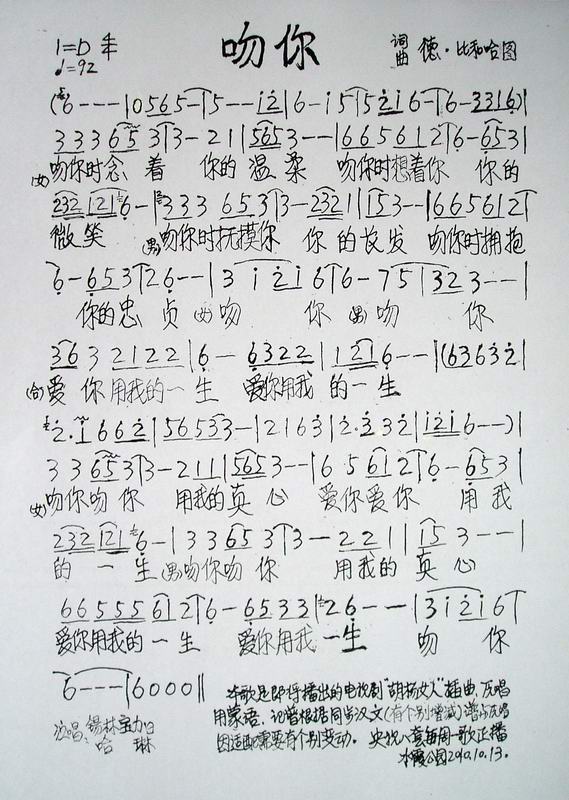 吻你
1=D 4/4
♩=92
词曲 德·比和哈图
(6 - - - | 0 5 6 5 - | 5 - - i 2 | 6 - i 5 | 5 2 i 6 - | 6 - 3 3 1 6 ) |
3 3 3 6 5 3 | 3 - 2 1 | 5 6 5 3 - - | 6 6 5 6 1 2 | 6 - 6 5 3 |
(女)吻你时念着 你的温柔 吻你时想着你 你的
2 3 2 1 2 1 6 - | 3 3 3 6 5 3 | 3 - 2 3 2 1 | 1 5 3 - - | 6 6 5 6 1 2 |
微笑 (男)吻你时抚摸你 你的长发 吻你时拥抱
6 - 6 5 3 | 2 6 - - | 3 i 2 i 6 | 6 - 7 5 | 3 2 3 - - |
你的忠贞 (女)吻 你 (男)吻 你
3 6 3 2 1 2 2 | 6 - 6 3 2 2 | 1 2 1 6 - - | ( 6 3 6 3 2 |
(合)爱你用我的一生 爱你用我的一生
2 · 1 6 6 2 | 5 6 5 3 3 - | 2 1 6 3 | 2 · 3 3 2 | i 2 i 6 - - ) |
3 3 6 5 3 | 3 - 2 1 1 | 5 6 5 3 - - | 6 5 6 1 2 | 6 - 6 5 3 |
(女)吻你吻你 用我的真心 爱你爱你 用我
2 3 2 1 2 1 6 - | 3 3 6 5 3 | 3 - 2 2 1 | 1 5 3 - - |
的一生 (男)吻你吻你 用我的真心
6 6 5 5 5 6 1 2 | 6 - 6 5 3 3 | 2 6 - - | 3 i 2 i 6 |
爱你用我的一生 爱你用我一生 吻你
6 - - - | 6 0 0 0 ||
演唱：锡林宝力日
哈琳
本歌是即将播出的电视剧"胡杨女人"插曲，原唱
用蒙语。记谱根据同步汉文(有个别增减)谱与原唱
因适配需要有个别变动。央视八套每周一歌正播
水霞公园2010.10.13.